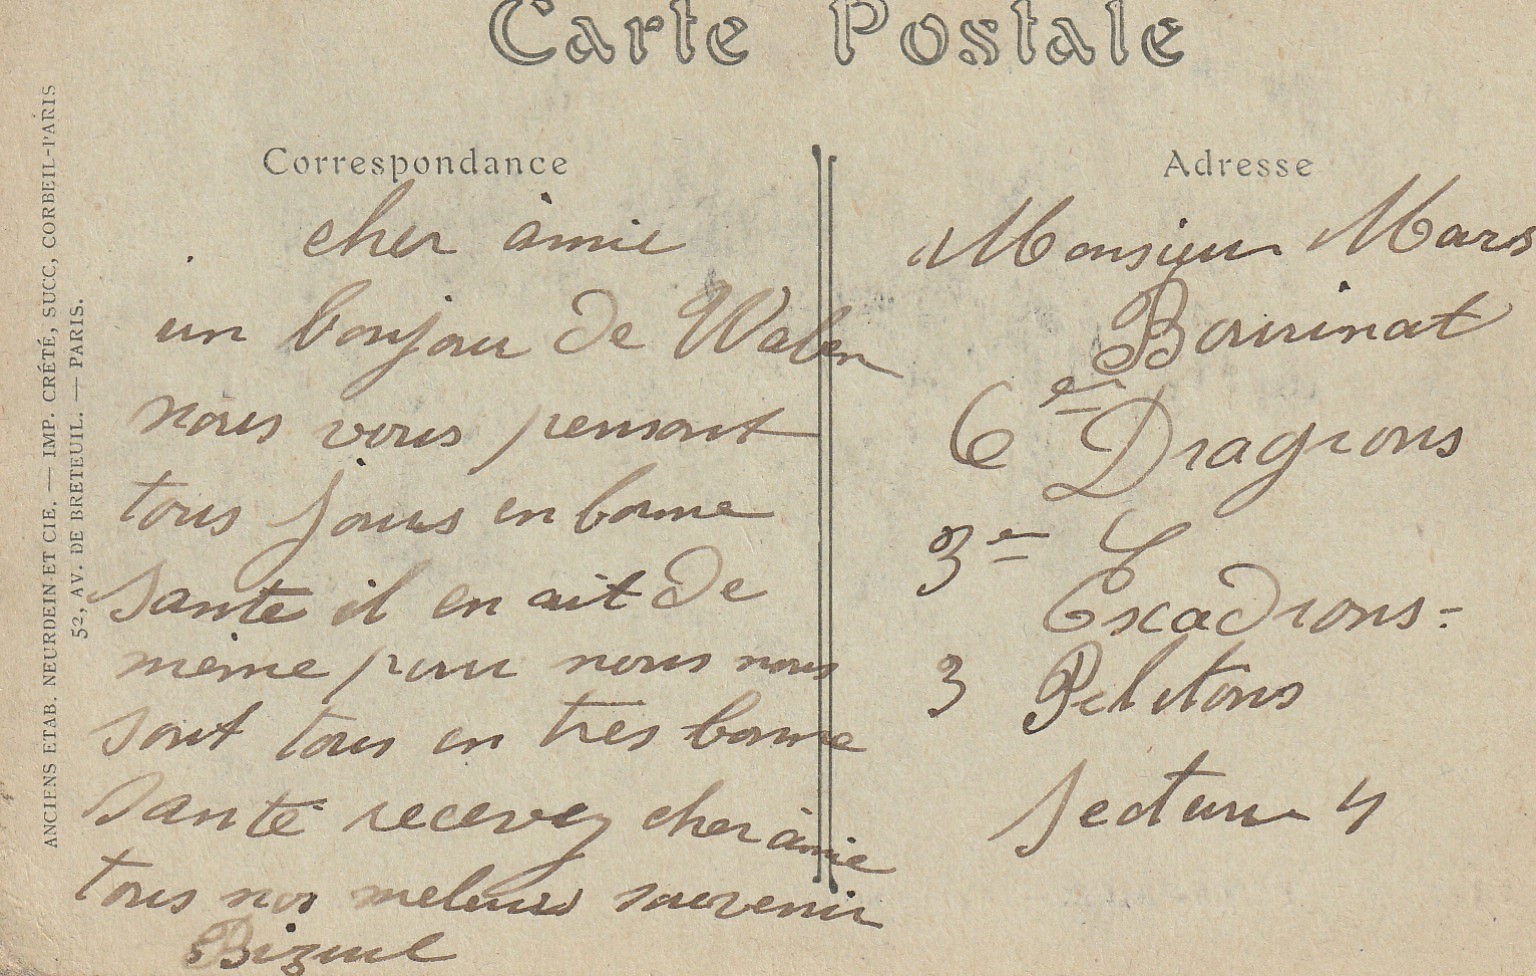 Carte Postale
Correspondance
cher amie
un bonjour de Waben
nous vous pensont
tous jours en bonne
santé il en ait de
même pour nous nous
sont tous en tres bonne
santé recevez cher amie
tous nos meleurs souvenir
Bizeul
Adresse
Monsieur Mars
Bourinat
6e Dragons
3e
Escadrons
3 Pelotons
Secteur 4
ANCIENS ETAB. NEURDEIN ET CIE. — IMP. CRÉTÉ, SUCC, CORBEIL-PARIS
52, AV. DE BRETEUIL. — PARIS.